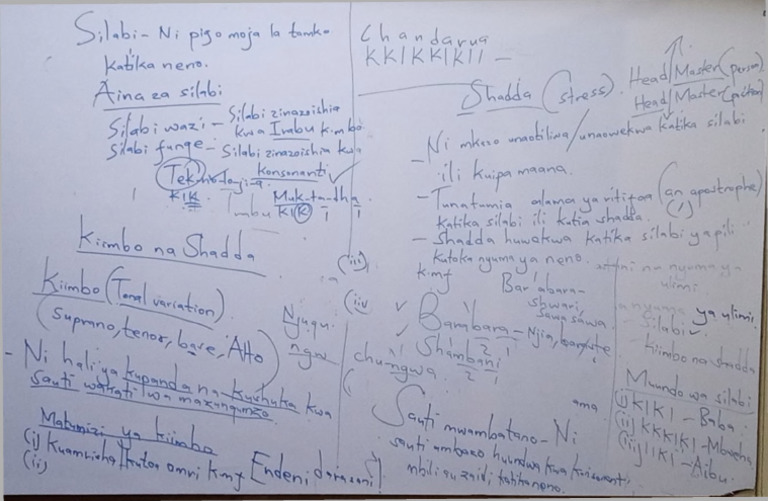 Silabi - Ni pigo moja la tamko
katika neno.
Aina za silabi
Silabi wazi - Silabi zinazoishia
kwa Irabu kimbo
Silabi funge - Silabi zinazoishia kwa
konsonanti
Tek-no-lo-ji-a
KIK
Muk-ta-dha
KIK
Kiimbo na Shadda
Kiimbo (Tonal variation)
(Suprano, tenor, base, Alto)
- Ni hali ya kupanda na kushuka kwa
sauti wakati wa mazungumzo
Matumizi ya kiimbo
(i) Kuamrisha/kutoa amri k.m Endeni darasani
(ii)
Chandarua
KKIKKIKII -
Shadda (stress).
- Ni mkazo unaotiliwa/unaowekwa katika silabi
ili kuipa maana.
- Tunatumia alama ya ritifaa (an apostrophe)
katika silabi ili kutia shadda. (')
- Shadda huwekwa katika silabi ya pili
kutoka nyuma ya neno.
k.m
Bar'abara-
shwari,
sawasawa.
Barabara - Njia, barabste
2 1
Shambani
2 1
(iii)
(iv
Njugu
ngw
chungwa.
Sauti mwambatano - Ni
sauti ambazo huundwa kwa konsonanti
mbili au zaidi katika neno.
Head Master (person)
Head Master (position)
nyuma ya
ulimi
ya ulimi.
silabi
kiimbo na shadda
ama
Muundo wa silabi
(i) KIKI - Baba
(ii) KKKIKI - Mbweha
(iii) IIKI - Aibu.